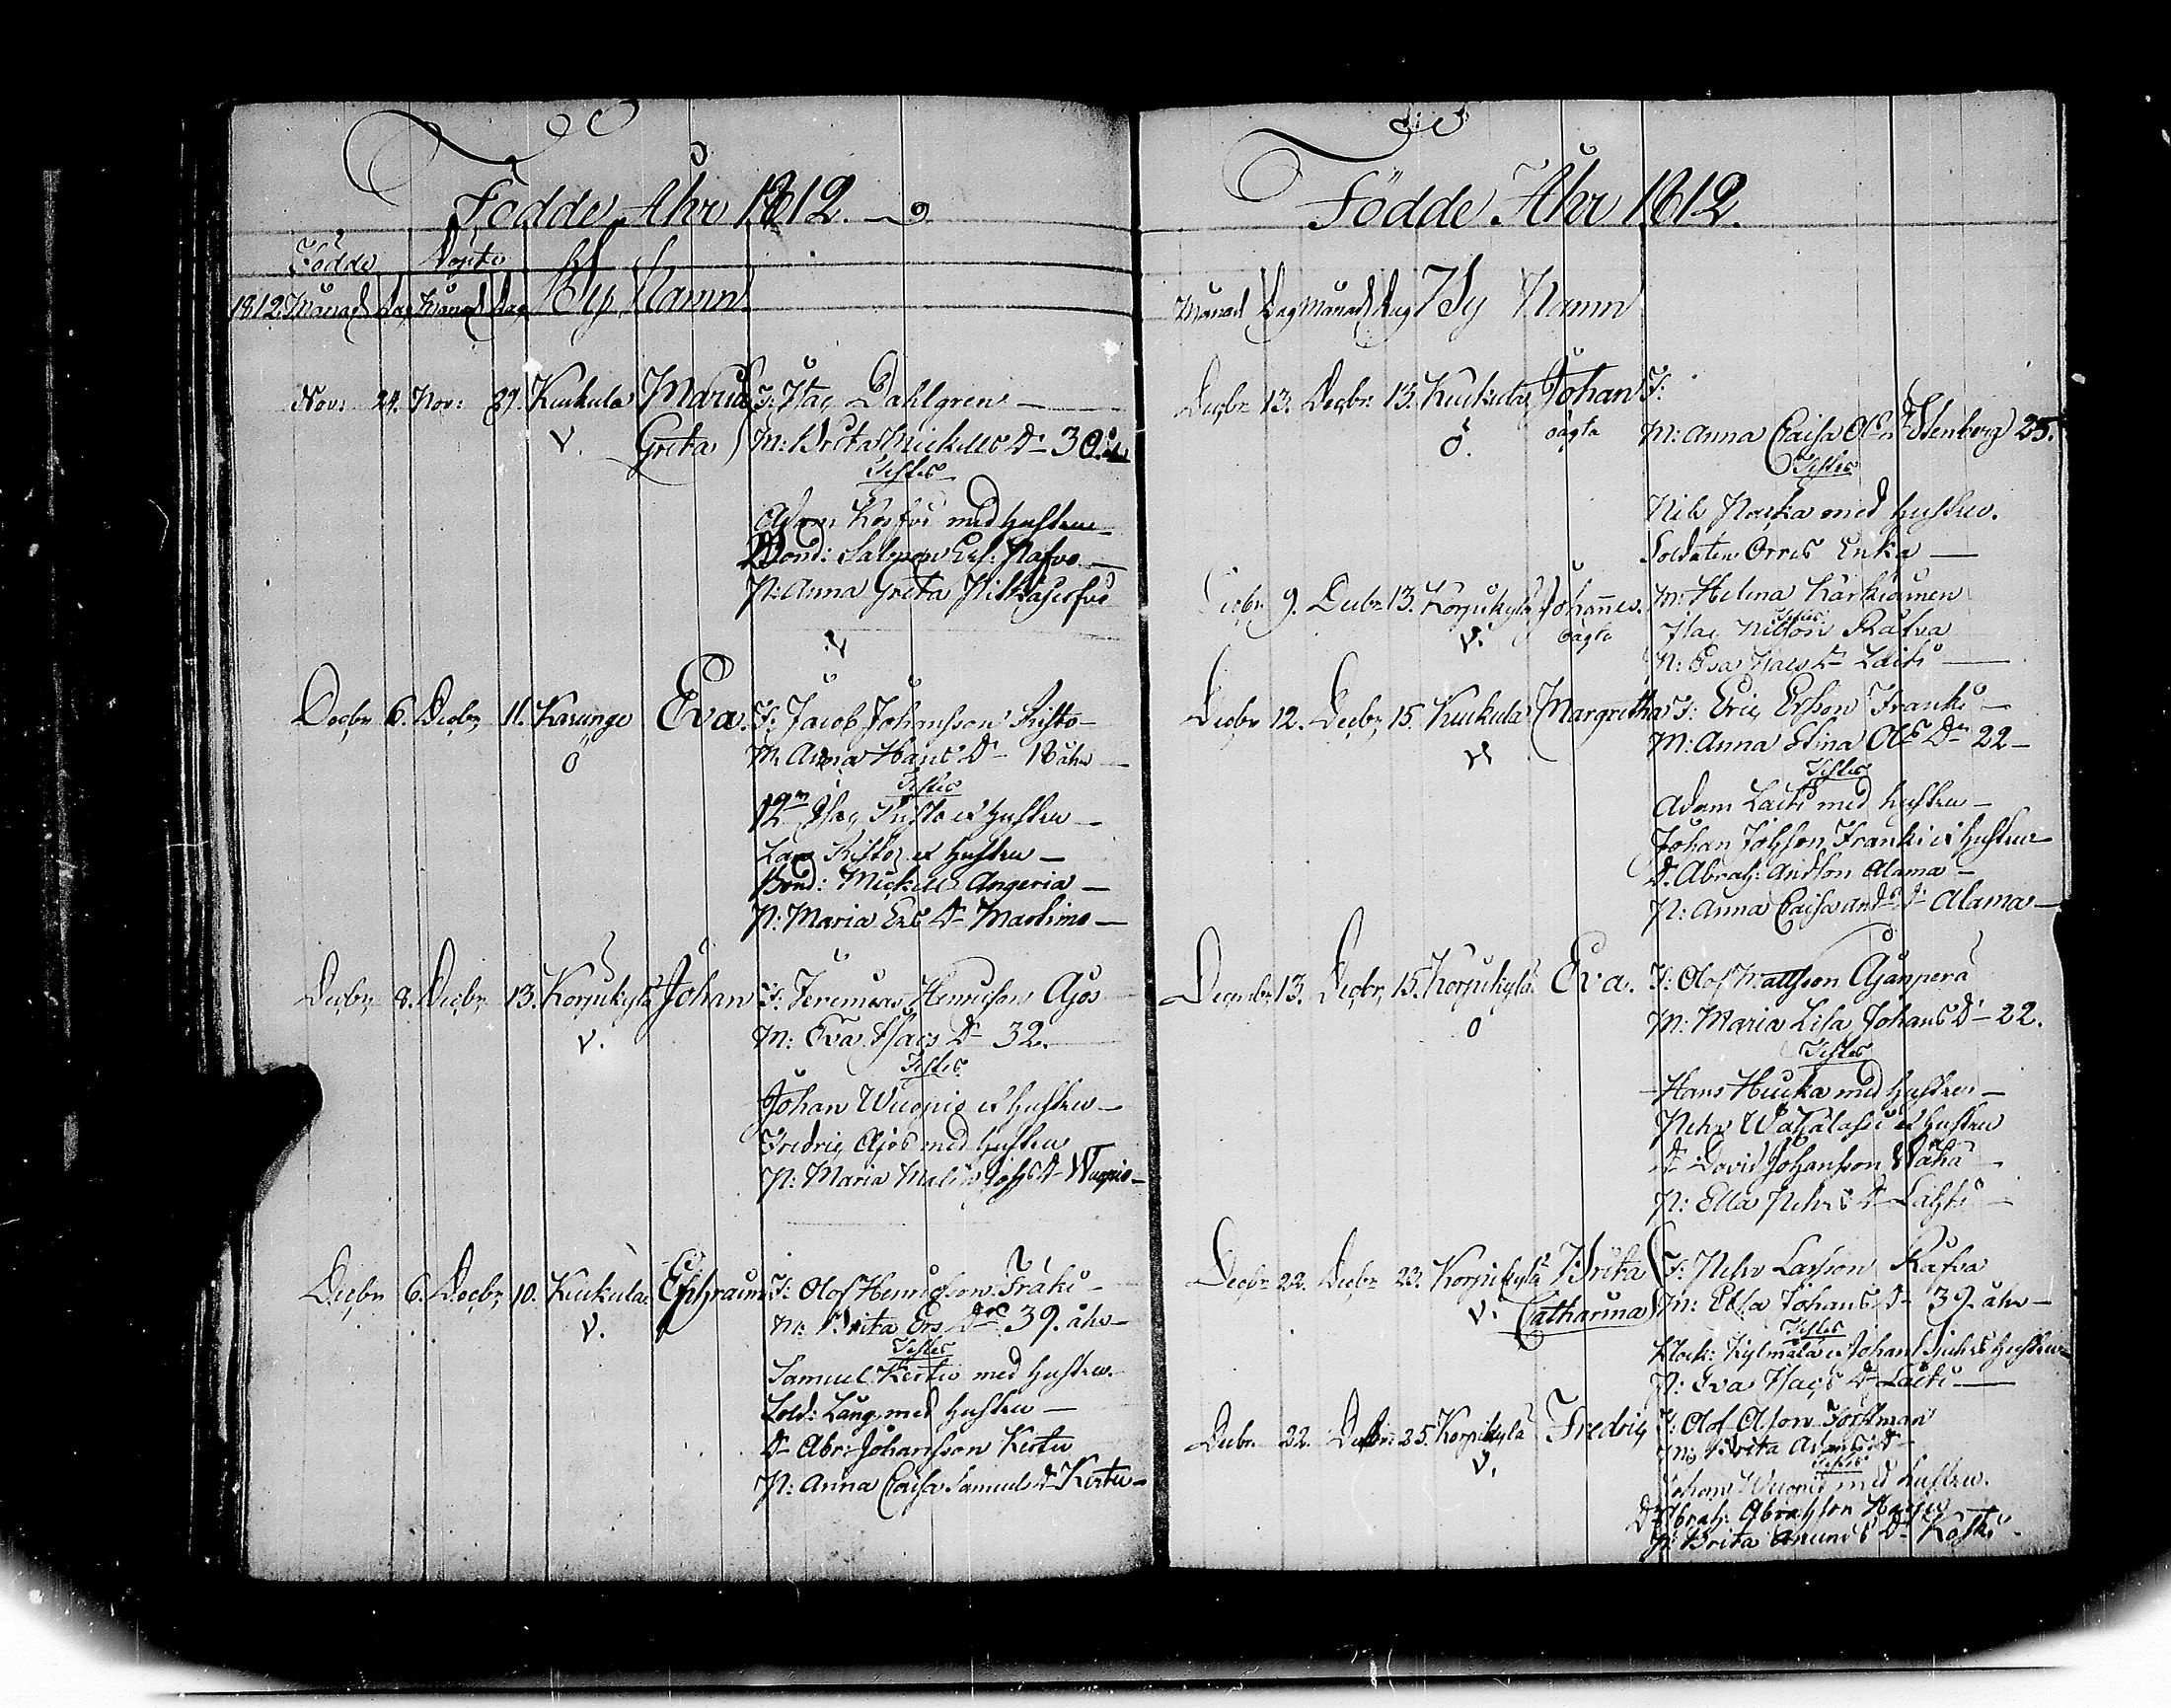 Födde Ahr 1812.
Födde Döpte
1812. Månad Dag Månad Dag By Namn
Nov: 24. Nov: 29. Kuckula Maria F: Isac Dahlgren
V. Greta M: Brita Mickels Dr 30.
Testes
Adam med hustru
Bond: Salomon Ers: Rafvo
P: Anna Greta
V
Decbr 6. Decbr 11. Karunge Eva. F: Jacob Johansson Risto
Ö M: Anna Hans Dr 18 åhr
Testes
12m Isac Risto et hustru
Lars Risto et hustru
Bond: Mickell Angeria
P: Maria Ers Dr Martimo
Decbr 8. Decbr 13. Korpikylä Johan F: Jeremias Henricson Ajos
V. M: Eva Isacs Dr 32.
Testes
Johan Wuopio et hustru
Fredric Ajos med hustru
P: Maria Malin Johs Dr Wuopio
Decbr 6. Decbr 10. Kuckula Ephraim F: Olof Henricson Fraki
V. M: Brita Ers Dr 39. åhr
Testes
Samuel Kertu med hustru.
Sold: Lång med hustru
Dr Abr: Johansson Kertu
P: Anna Caisa Samuels Dr Kertu
Födde Åhr 1812.
Månad Dag Månad Dag By Namn
Decbr 13. Decbr 13. Kuckula Johan F:
Ö. oägta M: Anna Caisa Ols Dr Stenberg 25.
Testes
Nils Narka med hustru.
Soldaten Orres Enka
Decbr 9. Decbr 13. Korpikylä Johannes. M: Helena Karkiainen
V. oägta Testes
Isac Nilsson Rafva
P: Eva Isacs Dr Laiti
Decbr 12. Decbr 15. Kuckula Margretha F: Eric Ersson Franki
V M: Anna Stina Ols Dr 22
Testes
Adam Laiti med hustru
Johan Johsson Franki et hustru
D. Abrah: Andsson Alama
P: Anna Caisa Ands Dr Alama
Decembr 13. Decbr 15. Korpikylä Eva. F: Olof Mattsson Ajanperä
Ö M: Maria Lisa Johans Dr 22.
Testes
Hans Hucka med hustru
Pehr et hustru
Dr David Johansson Waha
P: Ella Pehrs Dr Lahti
Decbr 22. Decbr 23. Korpikylä Brita F: Pehr Larsson Rafva
V. Catharina M: Ella Johans Dr 39. åhr
Testes
Klock: Kylmälä et Johan hustru
P: Eva Isacs Dr Laiti
Decbr. 22. Decbr: 25. Korpikylä Fredric F: Olof Olson Forsman
V. M: Brita Dr
Testes
Johan Wuopio med hustru.
Dr Abrah: Abrahsson
P: Brita Anunds Dr Koski